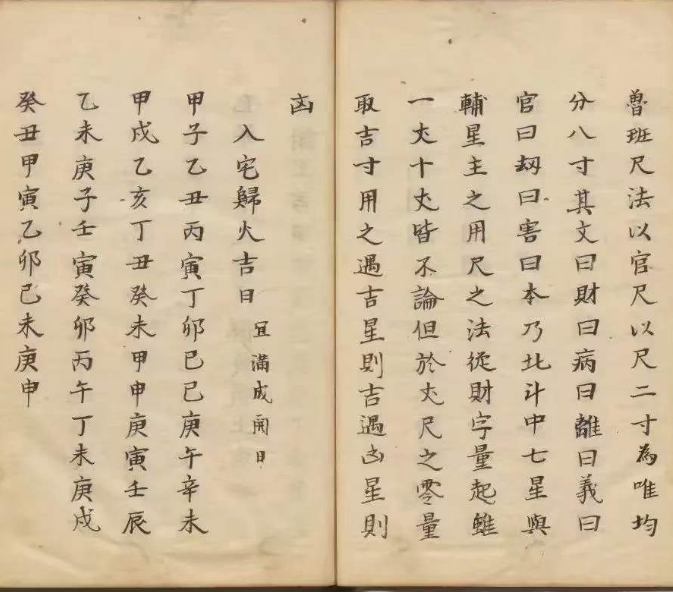 魯班尺法以官尺以尺二寸為唯均
分八寸其文曰財曰病曰離曰義曰
官曰刼曰害曰本乃北斗中七星與
輔星主之用尺之法從財字量起雖
一丈十丈皆不論但於丈尺之零量
取吉寸用之遇吉星則吉遇凶星則
凶
入宅歸火吉日 宜滿成開日
甲子乙丑丙寅丁卯巳巳庚午辛未
甲戌乙亥丁丑癸未甲申庚寅壬辰
乙未庚子壬寅癸卯丙午丁未庚戌
癸丑甲寅乙卯巳未庚申